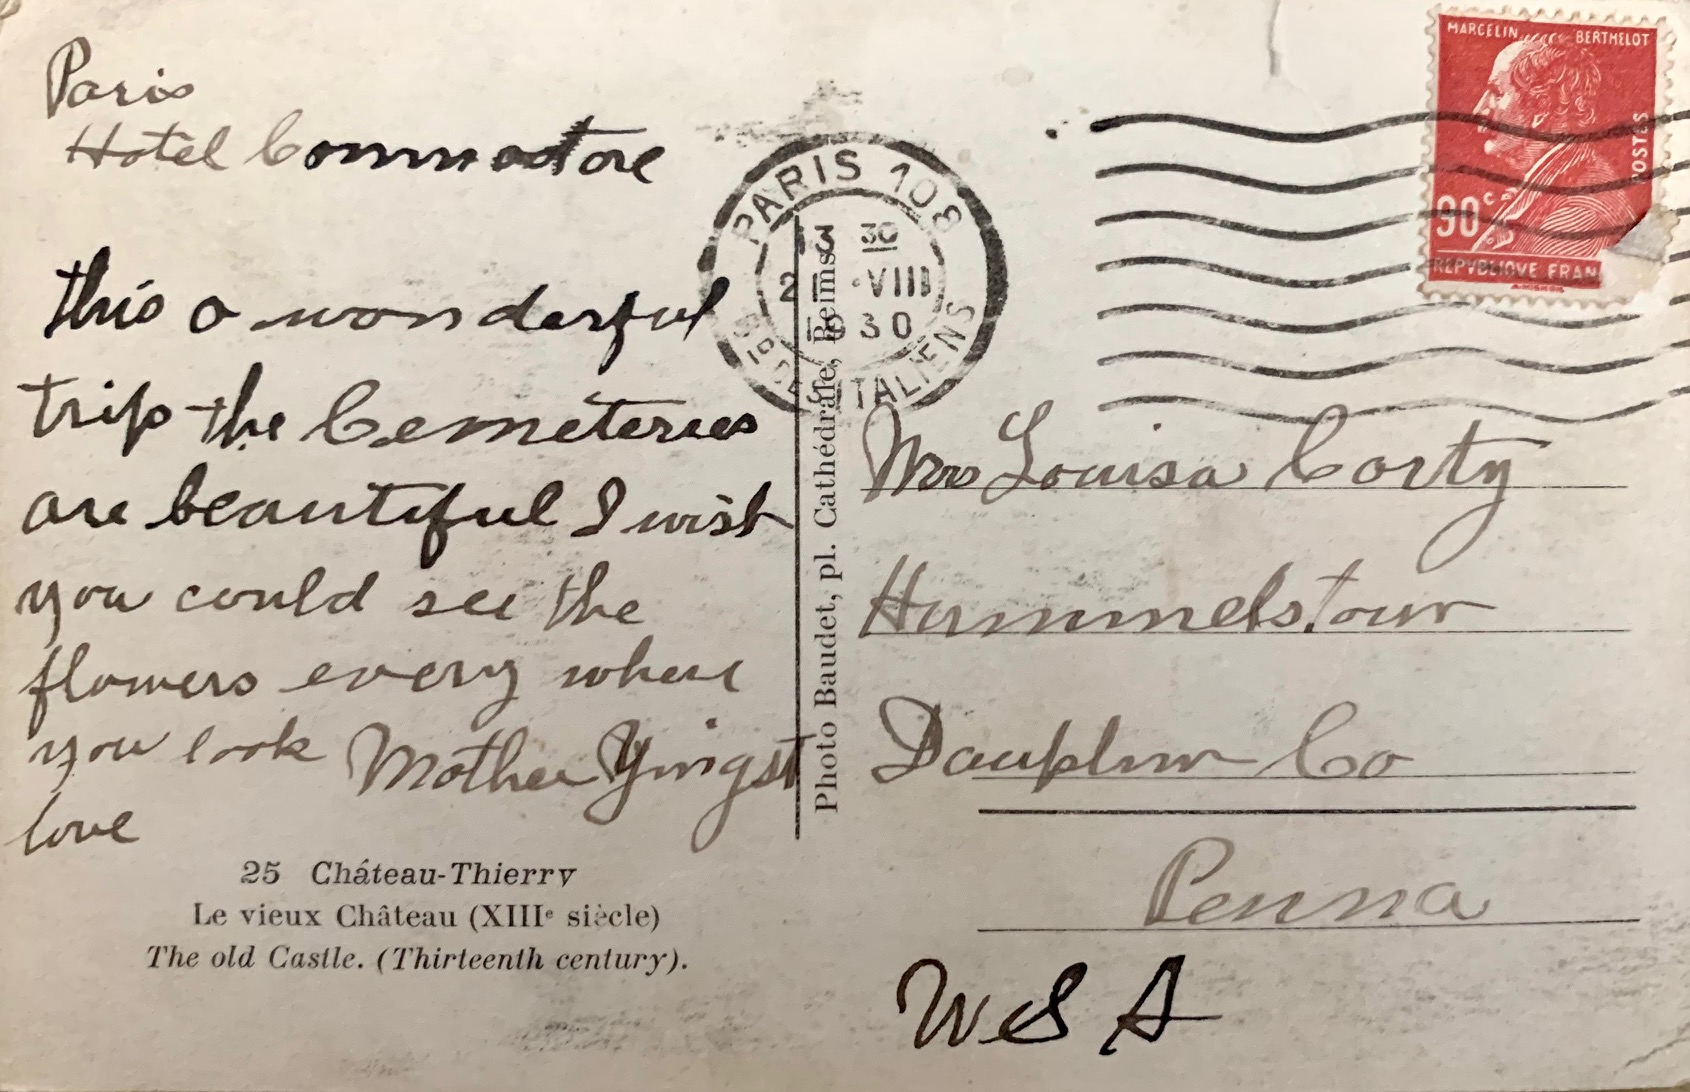 Paris
Hotel Commodore
this a wonderful
trip the Cemeteries
are beautiful I wish
you could see the
flowers every where
you look Mother Yingst
love
25 Château-Thierry
Le vieux Château (XIIIe siècle)
The old Castle. (Thirteenth century).
Photo Baudet, pl. Cathédrale, Reims
PARIS 108
13 30
VIII
30
ITALIENS
MARCELIN BERTHELOT
POSTES
90c
REPVBLIQVE FRAN
Mrs Louisa Corty
Hummelstown
Dauphin Co
Penna
U S A